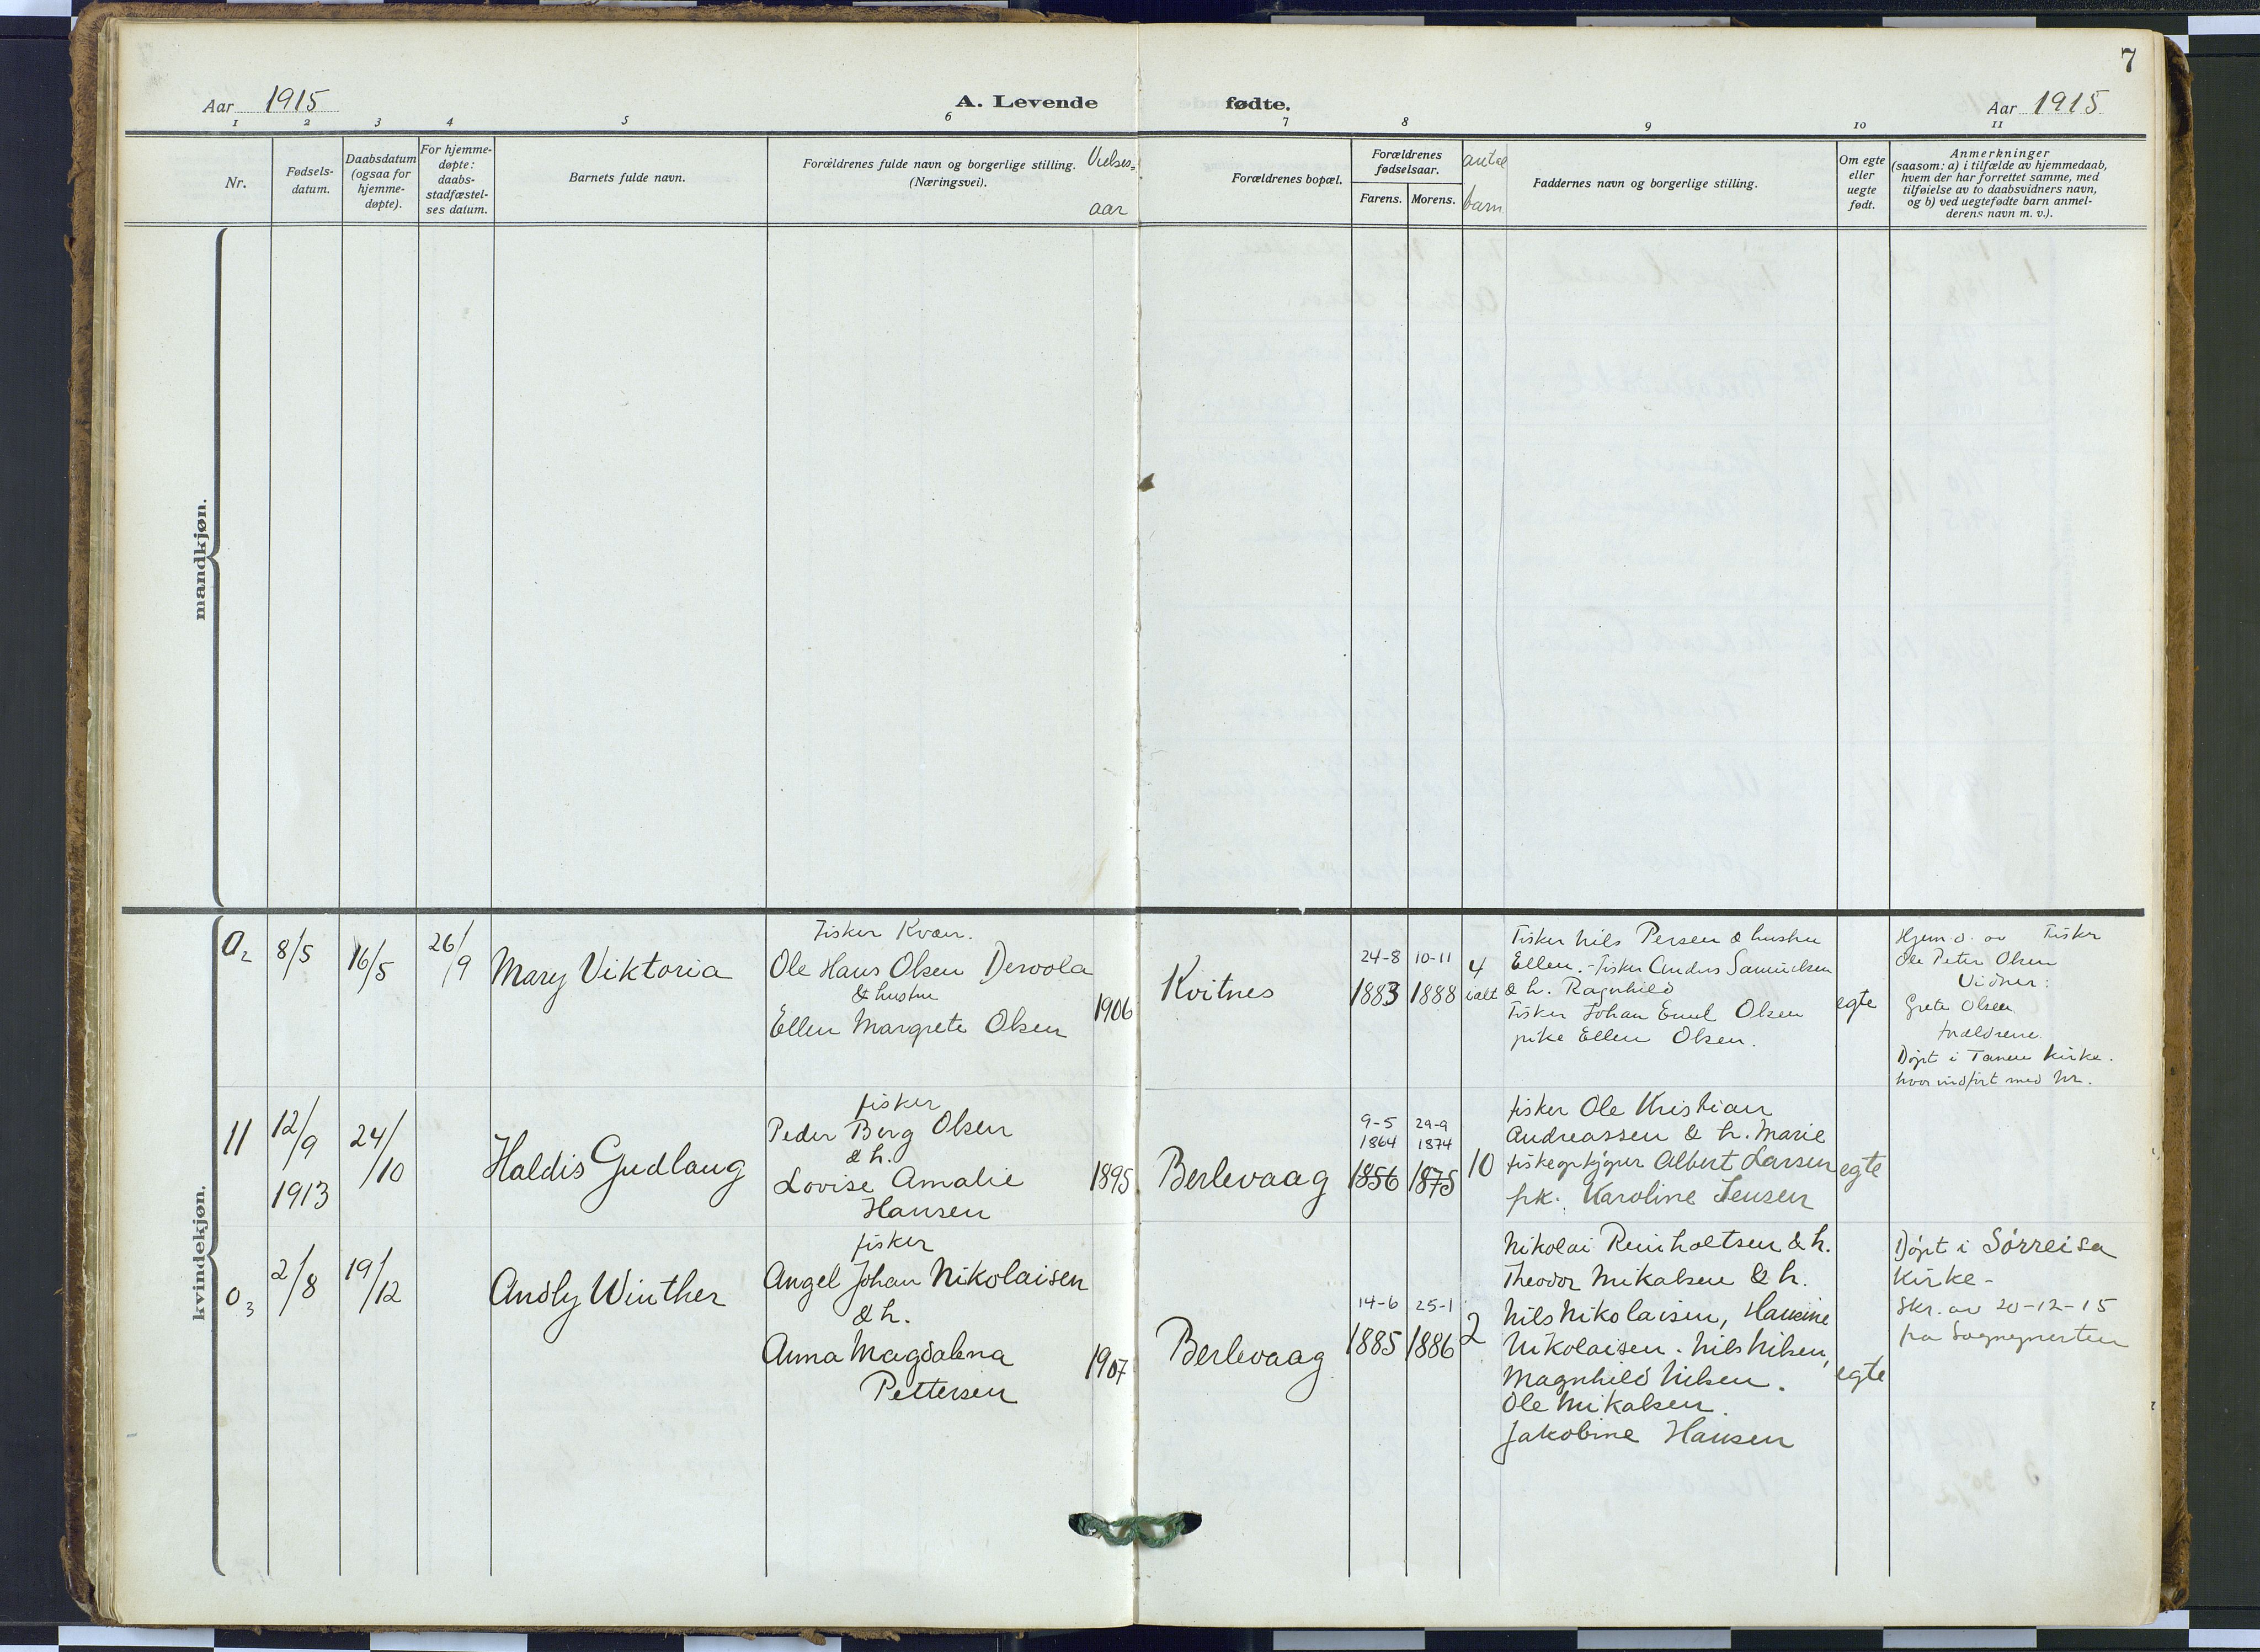 7
Aar 1915
A. Levende fødte.
Aar 1915
1 2 3 4 5 6 7 8 9 10 11
Nr.
Fødsels-
datum.
Daabsdatum
(ogsaa for
hjemme-
døpte).
For hjemme-
døpte:
daabs-
stadfæstel-
ses datum.
Barnets fulde navn.
Forældrenes fulde navn og borgerlige stilling.
(Næringsvei).
Vielses-
aar
Forældrenes bopæl.
Forældrenes
fødselsaar.
Farens. Morens.
antal
barn
Faddernes navn og borgerlige stilling.
Om egte
eller
uegte
født.
Anmerkninger
(saasom: a) i tilfælde av hjemmedaab,
hvem der har forrettet samme, med
tilføielse av to daabsvidners navn,
og b) ved uegtefødte barn anmel-
derens navn m. v.).
mandkjøn.
kvindekjøn.
0 2
8/5
16/5
26/9
Mary Viktoria
Fisker Kvæn.
Ole Hans Olsen Dervola
& hustru
Ellen Margrete Olsen
1906
Kvitnes
24-8 10-11
1883 1888
4
ialt
Fisker Nils Persen & hustru
Ellen. - Fisker Anders Samuelsen
& h. Ragnhild
Fisker Johan Emil Olsen
pike Ellen Olsen.
egte
Hjem.d. av Fisker
Ole Peter Olsen
Vidner:
Grete Olsen
forældrene.
Døpt i Tanen Kirke.
hvor indført med Nr.
11
12/9
1913
24/10
Haldis Gudlaug
fisker
Peder Berg Olsen
& h.
Lovise Amalie
Hansen
1895
Berlevaag
9-5 29-9
1864 1874
1856 1875
10
fisker Ole Kristian
Andreassen & h. Marie
fiskeopkjøper Albert Larsen
frk. Karoline Jensen
egte
0 3
2/8
19/12
Andly Winther
fisker
Angel Johan Nikolaisen
& h.
Anna Magdalena
Pettersen
1907
Berlevaag
14-6 25-1
1885 1886
2
Nikolai Reinholtsen & h.
Theodor Mikalsen & h.
Nils Nikolaisen, Hansine
Nikolaisen. Nils Nilsen,
Magnhild Nilsen.
Ole Mikalsen.
Jakobine Hansen
egte
Døpt i Sørreisa
Kirke-
Skr. av 20-12-15
fra Sognepresten